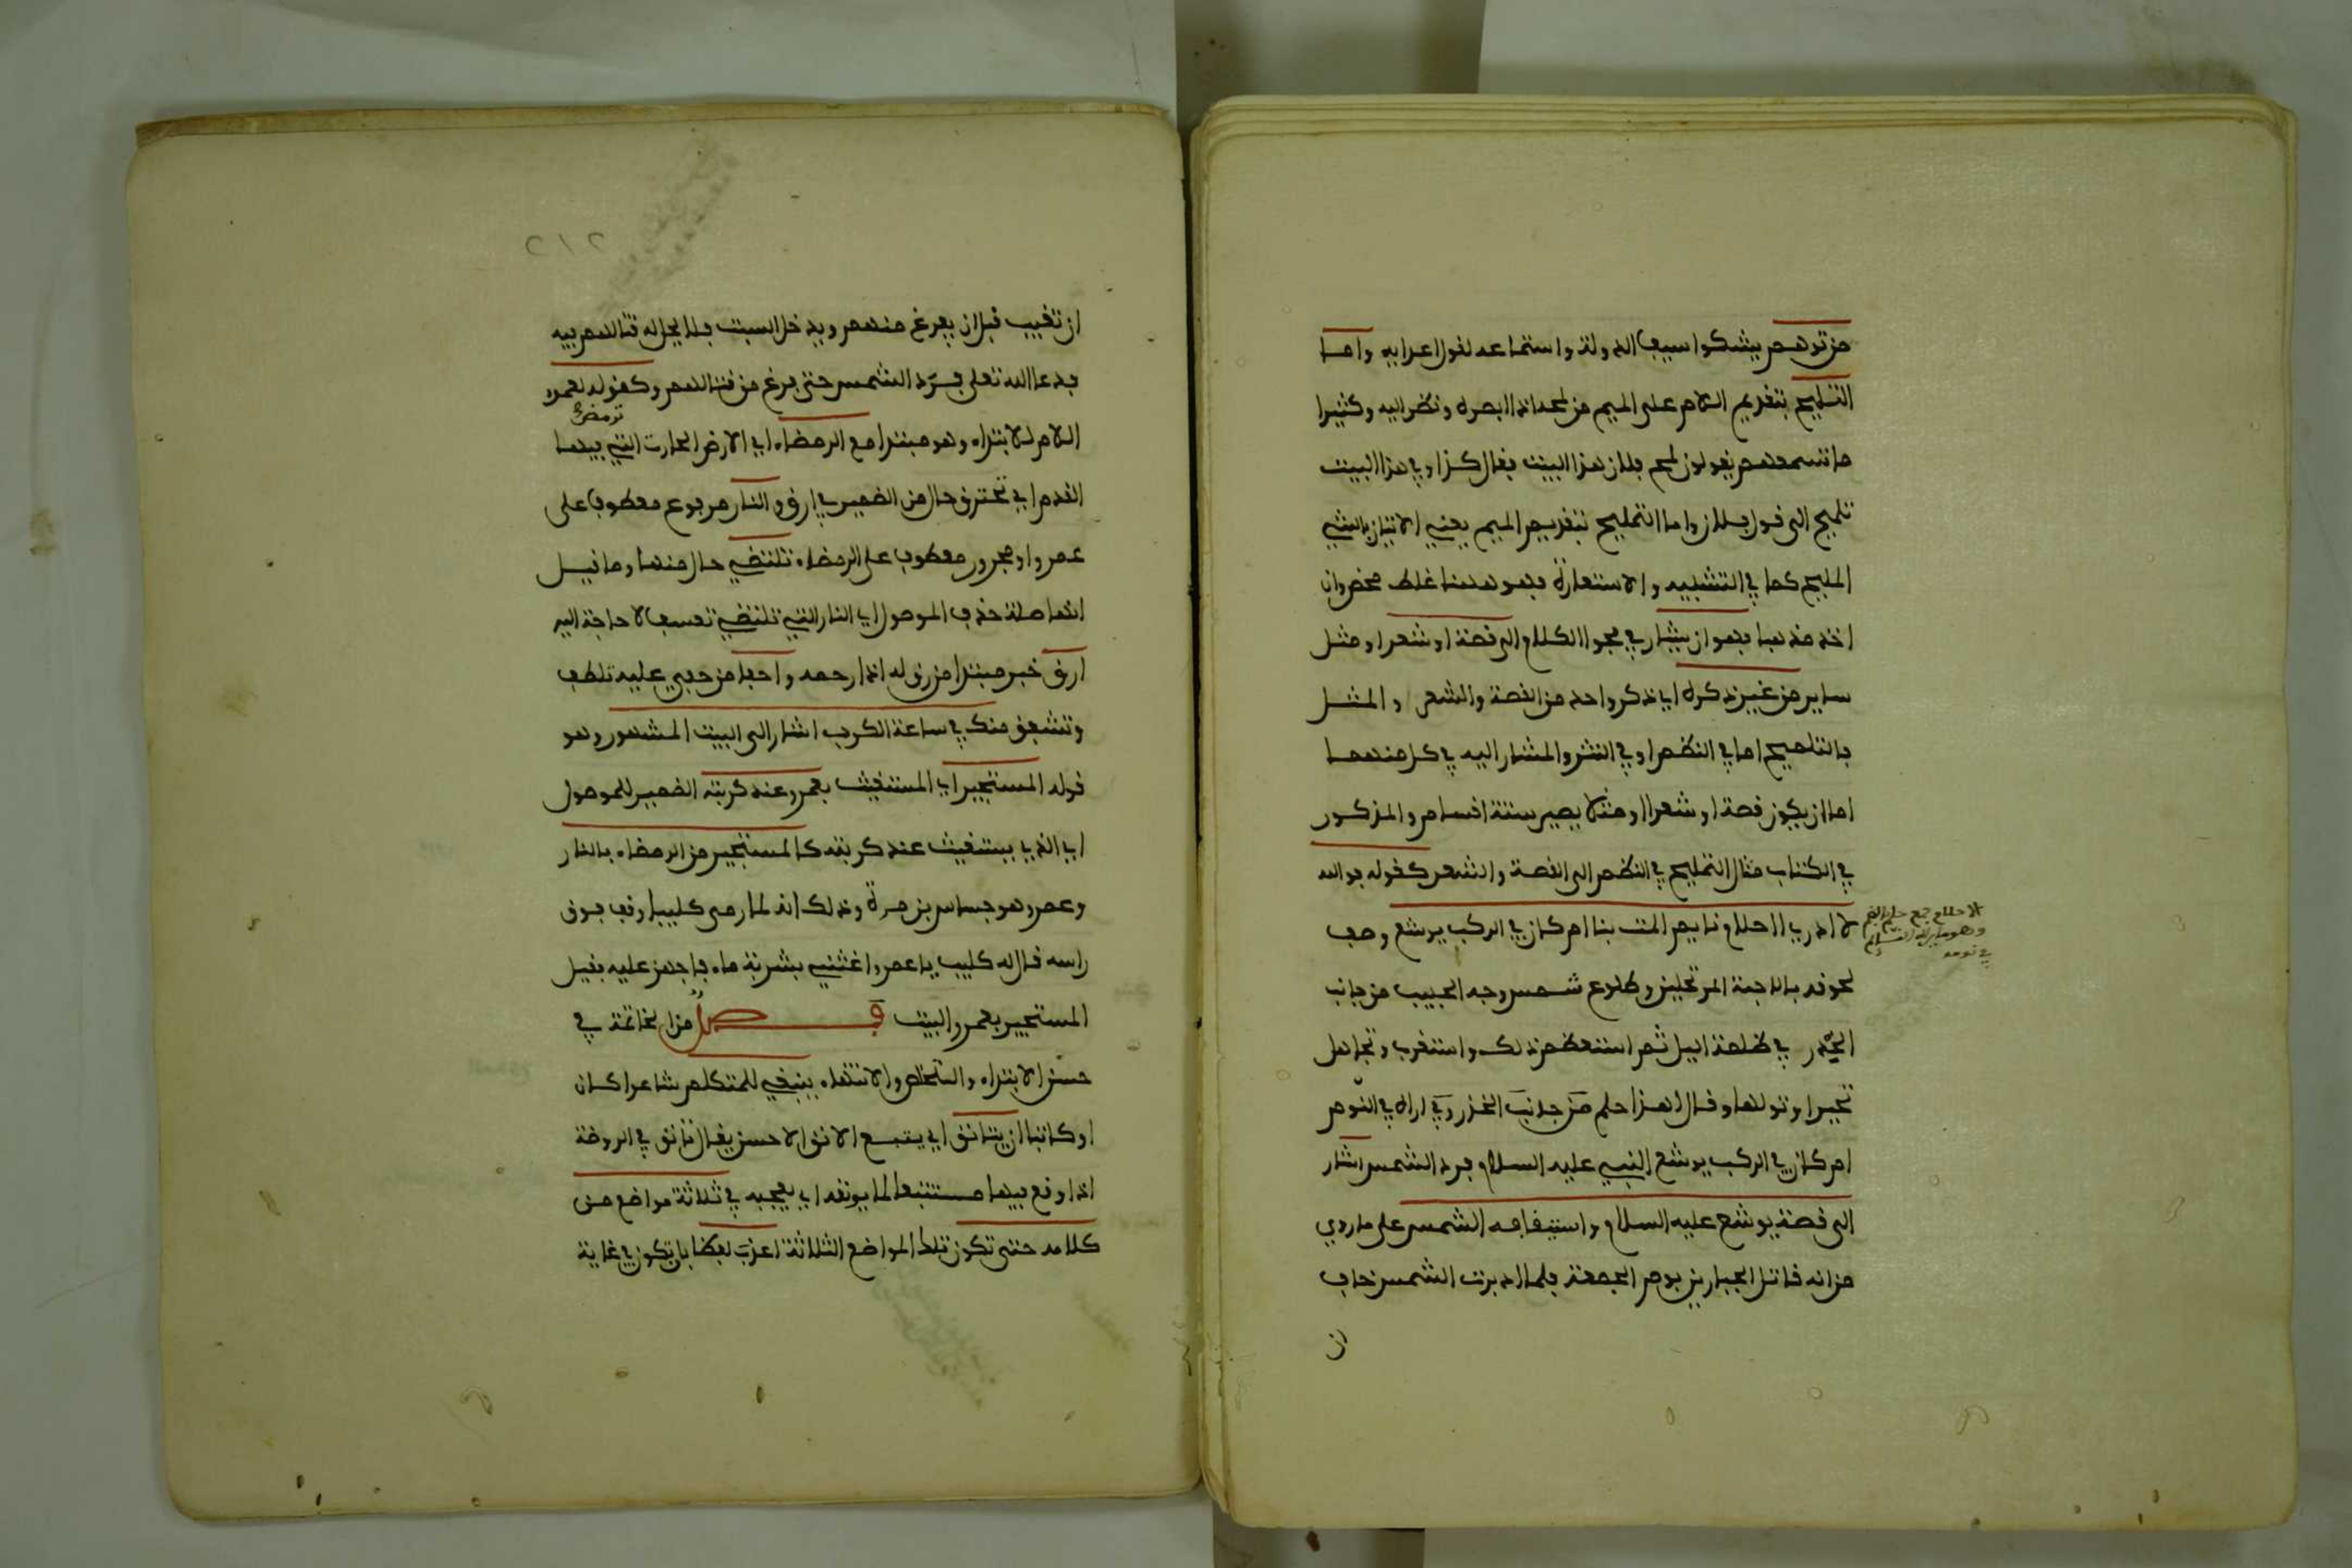 من توهم بشكوا سيف الدولة واستماعه لقول اعدايه واما
التلميح بتقديم اللام على الميم من لمحه اذا ابصره ونظر اليه وكثيرا
ما تسمعهم يقولون لمح فلان هذا البيت فقال كذا وفي هذا البيت
تلميح الى قول فلان واما التمليح بتقديم الميم يعني الاتيان بالشيء
المليح كما في التشبيه والاستعارة فهو ههنا غلط محض وان
اخذ مذهبا فهو ان يشار في فحوا الكلام الى قصة او شعر او مثل
ساير من غير ذكره اي ذكر واحد من القصة والشعر والمثل
فالتلميح اما في النظم او في النثر والمشار اليه في كل منهما
اما ان يكون قصة او شعرا او مثلا يصير ستة اقسام والمذكور
في الكتاب مثال التلميح في النظم الى القصة والشعر كقوله فوالله
لا ادري ااحلام نايم المت بنا ام كان في الركب يوشع وصف
الاحلام جمع حلم بالضم
وهو ما يراه النايم
في نومه
لحوقه بالاحبة المرتحلين وطلوع شمس وجه الحبيب من جانب
الخدر في ظلمة اليل ثم استعظم ذلك واستغرب وتجاهل
تحيرا وتولها وقال اهذا حلم من جانب الخدر اراه في النوم
ام كان في الركب يوشع النبي عليه السلام فرد الشمس اشار
الى قصة يوشع عليه السلام واستيقافه الشمس على ما روي
من انه قاتل الجبارين يوم الجمعة فلما ادبرت الشمس خاف
ان
٢١٢
ان تغيب قبل ان يفرغ منهم ويدخل السبت فلا يحل له قتالهم فيه
فدعا الله تعلى فرد الشمس حتى فرغ من قتالهم وكقوله لعمرو
ترمض
اللام للابتداء وهو مبتدا مع الرمضاء اي الارض الحارت التي فيها
القدم اي تحترق حال من الضمير في ارق والنار مرفوع معطوف على
عمرو او مجرور معطوف على الرمضاء تلتظي حال منها وما قيل
انها صلة حذف الموصول اي النار التي تلتظي تعسف لا حاجة اليه
ارق خبر مبتدا من رق له اذا رحمه واحفا من حفي عليه تلطف
وتشفق منك في ساعة الكرب اشار الى البيت المشهور وهو
قوله المستجير اي المستغيث بعمرو عند كربته الضمير للموصول
اي الذي يستغيث عند كربته كالمستجير من الرمضاء بالنار
وعمرو هو جساس بن مرة وذلك انه لما رمى كليبا وقف فوق
راسه قال له كليب يا عمرو اغثني بشربة ماء فاجهز عليه فقيل
المستجير بعمرو البيت فصل من الخاتمة في
حسن الابتداء والتخلص والانتهاء ينبغي للمتكلم شاعرا كان
او كاتبا ان يتانق اي يتبع الانق الاحسن يقال تانق في الروضة
اذا وقع فيها متتبعا لما يونقه اي يعجبه في ثلاثة مواضع من
كلامه حتى تكون تلك المواضع الثلاثة اعذب لفظا بان تكون في غاية